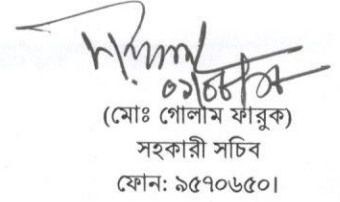 (মোঃ গোলাম ফারুক)
সহকারী সচিব
ফোন: ৯৫৭০৬৫০।